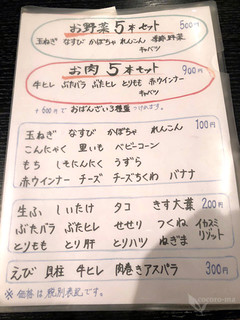 お野菜5本セット 500円
玉ねぎ なすび かぼちゃ れんこん 季節野菜
キャベツ
お肉5本セット 900円
牛ヒレ ぶたバラ ぶたヒレ とりもも 赤ウインナー
キャベツ
+600円で おばんざい3種盛 つけれます。
玉ねぎ なすび かぼちゃ れんこん 100円
こんにゃく 里いも ベビーコーン
もち しそにんにく うずら
赤ウインナー チーズ チーズちくわ バナナ
生ふ しいたけ タコ きす大葉 200円
ぶたバラ ぶたヒレ せせり つくね イカスミリゾット
とりもも とり肝 とりハツ ねぎま
えび 貝柱 牛ヒレ 肉巻きアスパラ 300円
※価格は税別表記です。